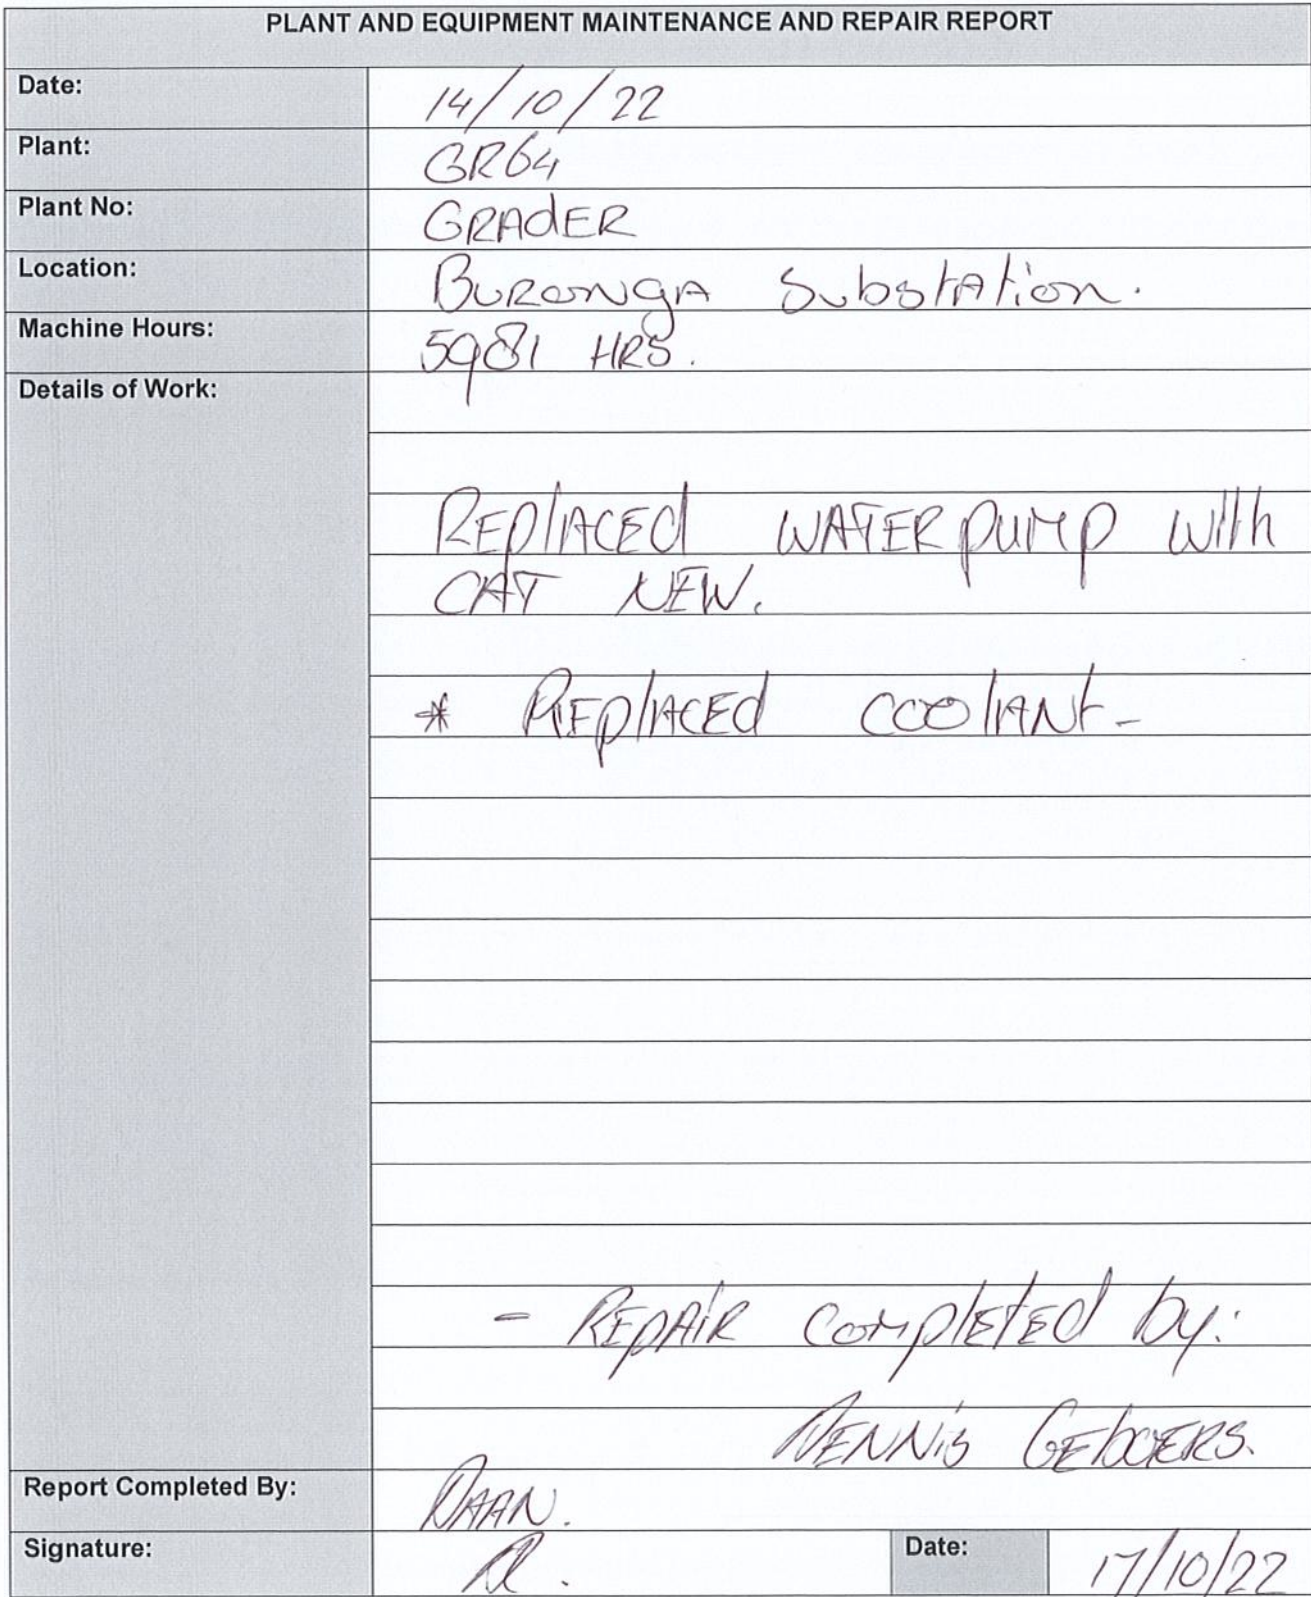 PLANT AND EQUIPMENT MAINTENANCE AND REPAIR REPORT
Date: 14/10/22
Plant: GR64
Plant No: GRAdER
Location: BURONGA SubstAtion.
Machine Hours: 5981 HRS.
Details of Work:
REplACEd WATER pUMp with
CAT NEW.
* REplACEd COOlANt-
- REpAiR COMplEtEd by:
DENNiS GEboERS.
Report Completed By: DAAN.
Signature: Date: 17/10/22